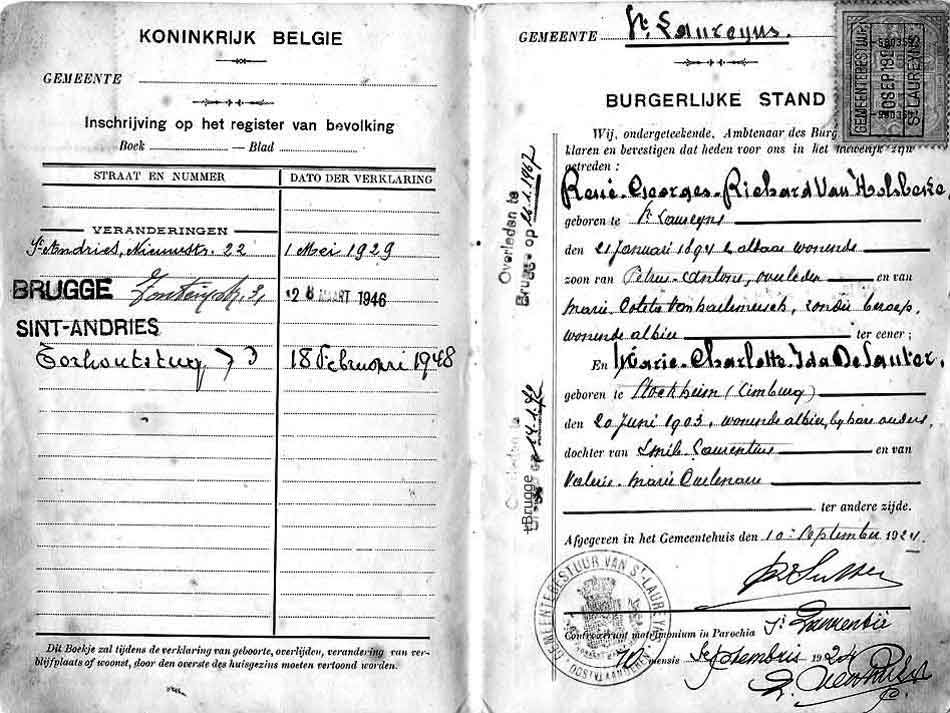 KONINKRIJK BELGIE
GEMEENTE
Inschrijving op het register van bevolking
Boek — Blad
STRAAT EN NUMMER DATO DER VERKLARING
VERANDERINGEN
St Andries, Nieuwstr. 22 1 Mei 1929
BRUGGE 31 28 MAART 1946
SINT-ANDRIES
Torhoutsteenweg 73 18 Februari 1948
Dit Boekje zal tijdens de verklaring van geboorte, overlijden, verandering van ver-
blijfplaats of woonst, door den overste des huisgezins moeten vertoond worden.
GEMEENTE St Laureyns.
BURGERLIJKE STAND
GEMEENTEBESTUUR
10 SEP 19
St LAUREYNS
Wij, ondergeteekende, Ambtenaar des Burg
klaren en bevestigen dat heden voor ons in het huwelijk zijn
getreden :
René-Georges-Richard Van Holsbeke
geboren te St Laureyns
den 21 Januari 1894 & aldaar wonende
zoon van Petrus-Antone, overleden en van
Marie Colete, zonder beroep,
wonende albier ter eener ;
En Marie-Charlotte-Ida De Sauter,
geboren te Stockheim (Limburg)
den 20 Juni 1903, wonende albier, by hare ouders,
dochter van Emile-Laurentius en van
Valerie-Marie
ter andere zijde.
Afgegeven in het Gemeentehuis den 10n September 1924.
GEMEENTEBESTUUR VAN St LAUREYNS
OOSTVLAANDEREN
Contraxerunt matrimonium in Parochia St Laurentii
10 mensis Septembris 1924
Overleden te
Brugge op
Overleden te
Brugge op 14.1.